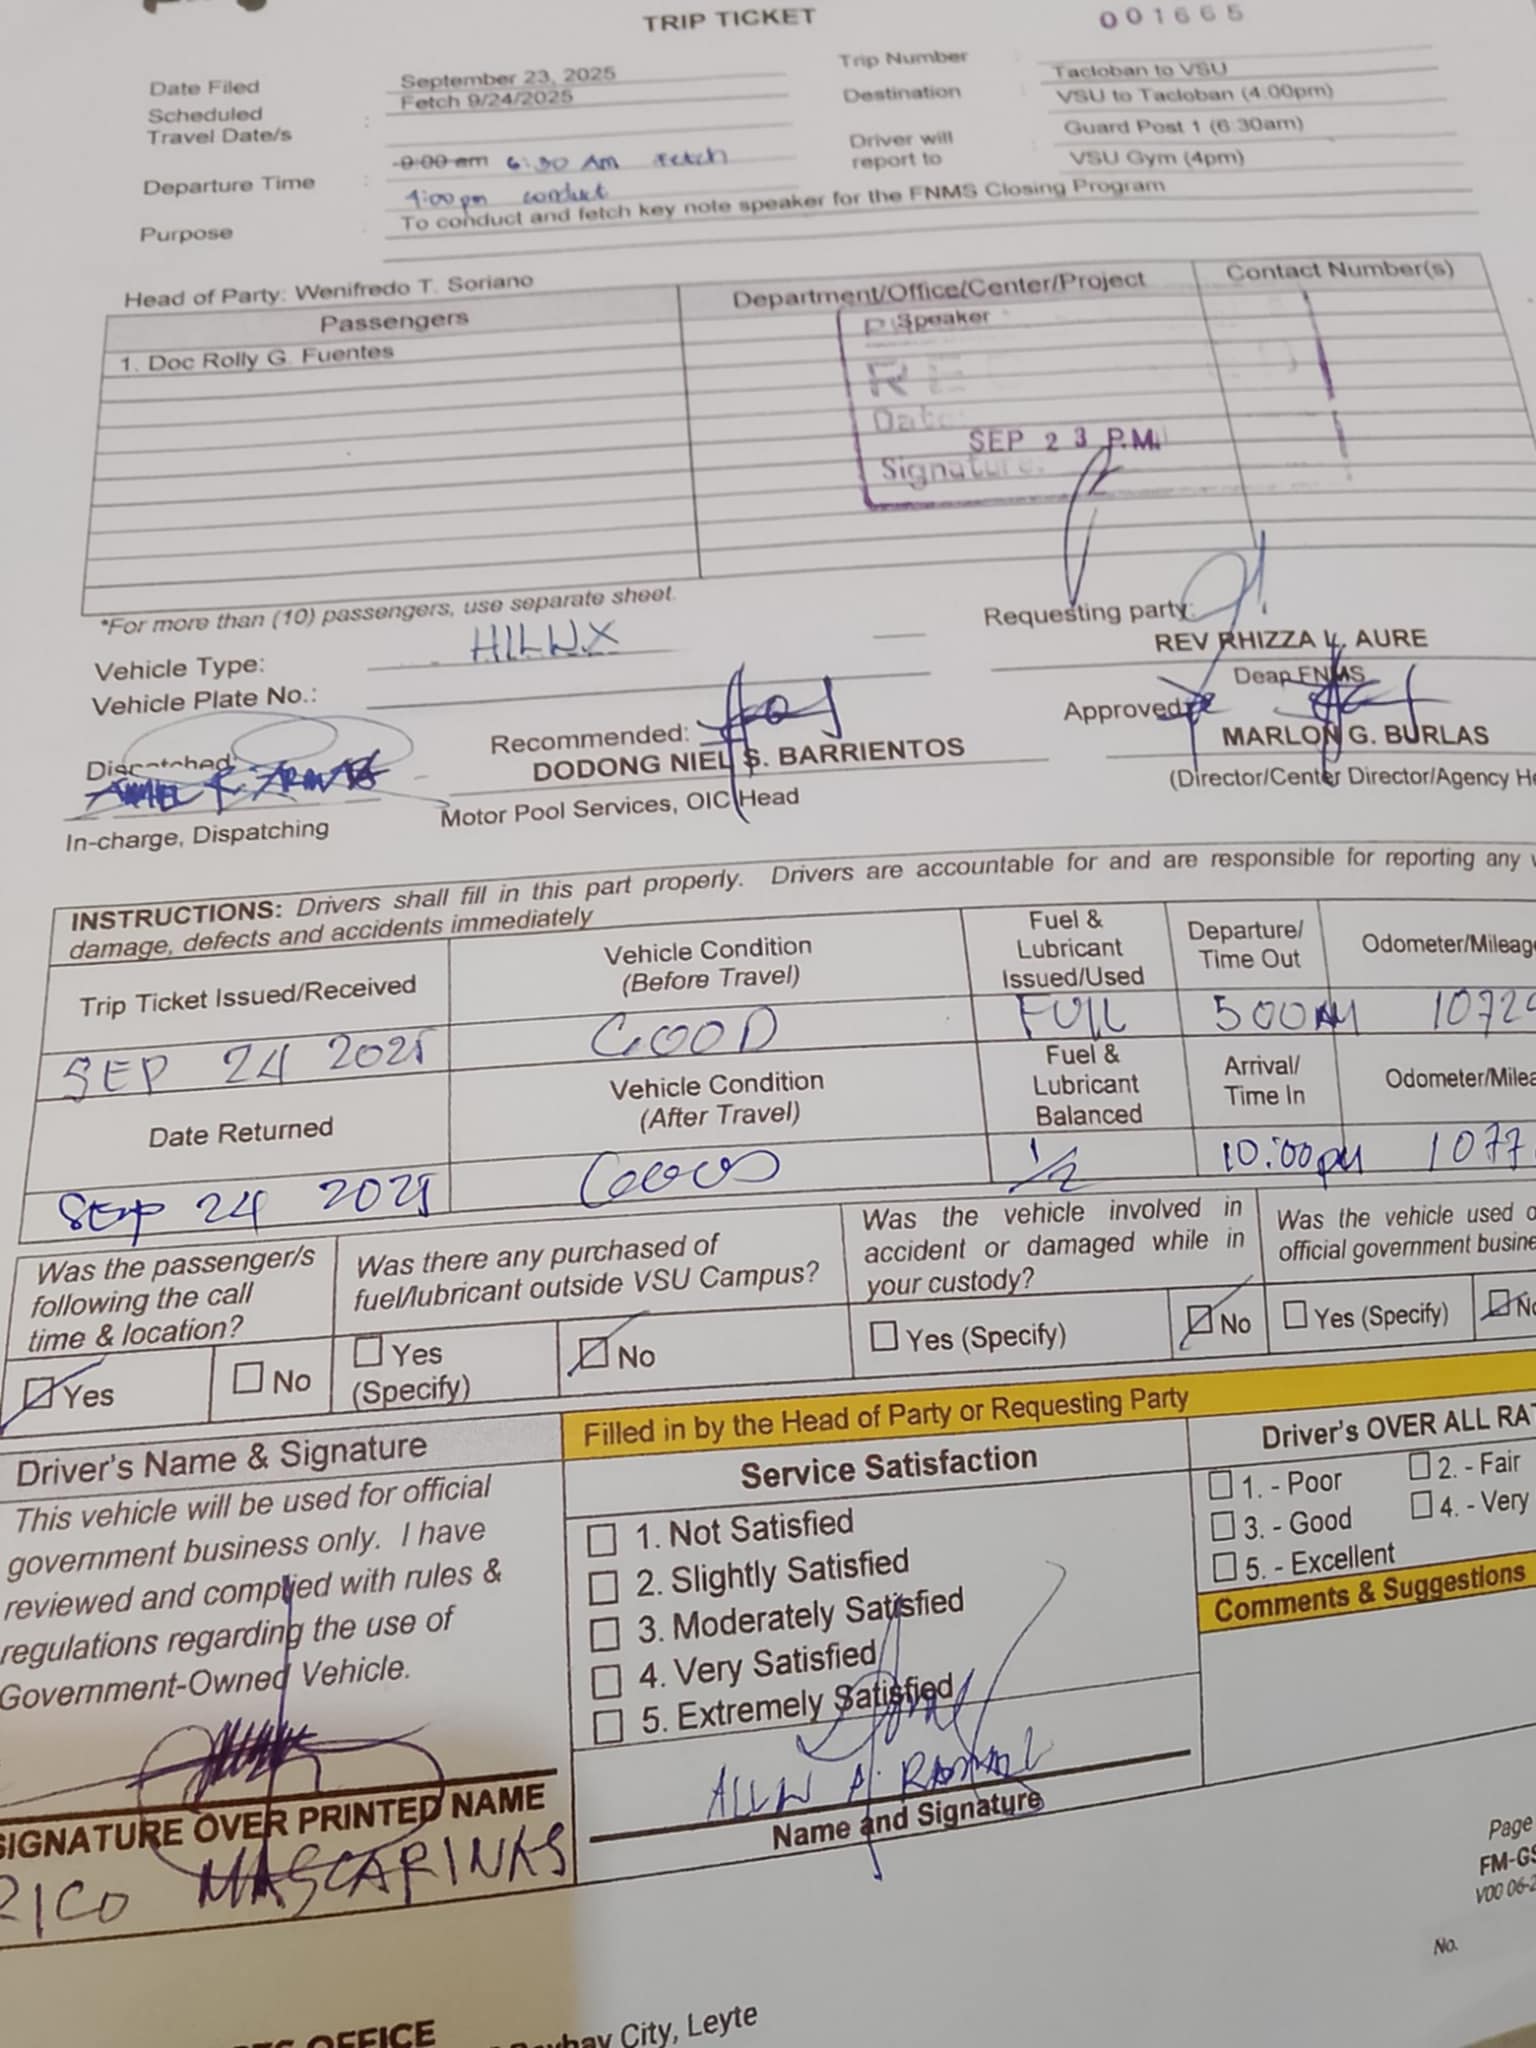 TRIP TICKET
001665
Date Filed
September 23, 2025
Trip Number
Tacloban to VSU
Scheduled
Travel Date/s :
Fetch 9/24/2025
Destination : VSU to Tacloban (4:00pm)
Departure Time : 9:00 am 6:30 Am Fetch
4:00 pm conduct
Driver will
report to : Guard Post 1 (6:30am)
VSU Gym (4pm)
Purpose : To conduct and fetch key note speaker for the FNMS Closing Program
Head of Party: Wenifredo T. Soriano
Passengers
Department/Office/Center/Project
Contact Number(s)
1. Doc Rolly G. Fuentes
Speaker
RE
Date:
SEP 23 P.M.
Signature:
*For more than (10) passengers, use separate sheet.
Vehicle Type: HILUX
Vehicle Plate No.:
Requesting party:
REV RHIZZA L. AURE
Dean FNMS
Dispatched:
In-charge, Dispatching
Recommended:
DODONG NIEL S. BARRIENTOS
Motor Pool Services, OIC Head
Approved:
MARLON G. BURLAS
(Director/Center Director/Agency He
INSTRUCTIONS: Drivers shall fill in this part properly. Drivers are accountable for and are responsible for reporting any
damage, defects and accidents immediately
Trip Ticket Issued/Received
Vehicle Condition
(Before Travel)
Fuel &
Lubricant
Issued/Used
Departure/
Time Out
Odometer/Mileage
SEP 24 2025
GOOD
FULL
500AM
1072
Date Returned
Vehicle Condition
(After Travel)
Fuel &
Lubricant
Balanced
Arrival/
Time In
Odometer/Milea
SEP 24 2025
Good
1/2
10:00pm
1077
Was the passenger/s
following the call
time & location?
Yes
No
Was there any purchased of
fuel/lubricant outside VSU Campus?
Yes
(Specify)
No
Was the vehicle involved in
accident or damaged while in
your custody?
Yes (Specify)
No
Was the vehicle used o
official government busine
Yes (Specify)
No
Driver's Name & Signature
This vehicle will be used for official
government business only. I have
reviewed and complied with rules &
regulations regarding the use of
Government-Owned Vehicle.
SIGNATURE OVER PRINTED NAME
RICO MASCARINAS
Filled in by the Head of Party or Requesting Party
Service Satisfaction
1. Not Satisfied
2. Slightly Satisfied
3. Moderately Satisfied
4. Very Satisfied
5. Extremely Satisfied
Name and Signature
Driver's OVER ALL RAT
1. - Poor
2. - Fair
3. - Good
4. - Very
5. - Excellent
Comments & Suggestions
Page
FM-GS
V00 06-2
No.
OFFICE
City, Leyte